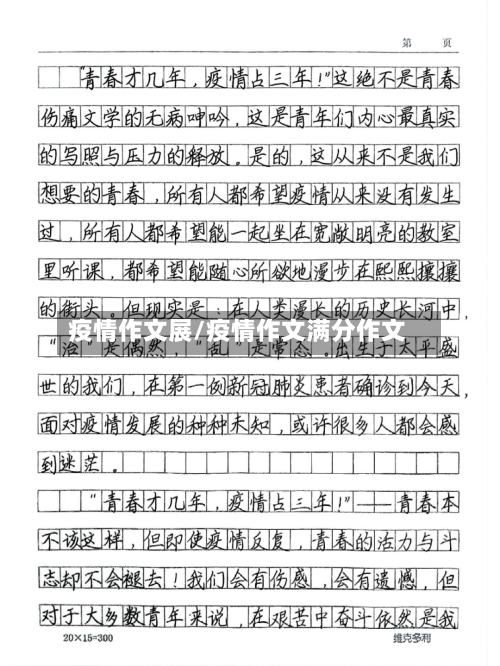 第 页
“青春才几年，疫情占三年！”这绝不是青春
伤痛文学的无病呻吟，这是青年们内心最真实
的写照与压力的释放。是的，这从来不是我们
想要的青春，所有人都希望疫情从来没有发生
过，所有人都希望能一起坐在宽敞明亮的教室
里听课，都希望能随心所欲地漫步在熙熙攘攘
的街头。但现实是：在人类漫长的历史长河中，
疫情作文展/疫情作文满分作文
“治”是偶然，“乱”是常态。出生于太平盛
世的我们，在第一例新冠肺炎患者确诊到今天，
面对疫情发展的种种未知，或许很多人都会感
到迷茫。
“青春才几年，疫情占三年！”——青春本
不该这样，但即使疫情反复，青春的活力与斗
志却不会褪去！我们会有伤感，会有遗憾，但
对于大多数青年来说，在艰苦中奋斗依然是我
20×15=300 维克多利